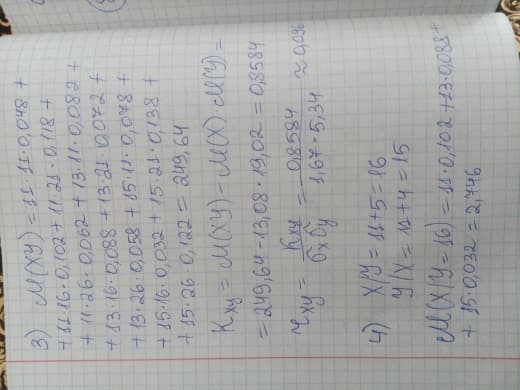 3) M(XY) = 11·11·0,048 +
+ 11·16·0,102 + 11·21·0,118 +
+ 11·26·0,062 + 13·11·0,082 +
+ 13·16·0,088 + 13·21·0,072 +
+ 13·26·0,058 + 15·11·0,078 +
+ 15·16·0,032 + 15·21·0,138 +
+ 15·26·0,122 = 249,64
Kxy = M(XY) - M(X)·M(Y) =
= 249,64 - 13,08·19,02 = 0,8584
rxy = Kxy/σxσy = 0,8584/1,67·5,34 ≈ 0,096
4) X/Y = 11+5 = 16
Y/X = 11+4 = 15
M(X/Y=16) = 11·0,102 + 13·0,088 +
+ 15·0,032 = 2,746